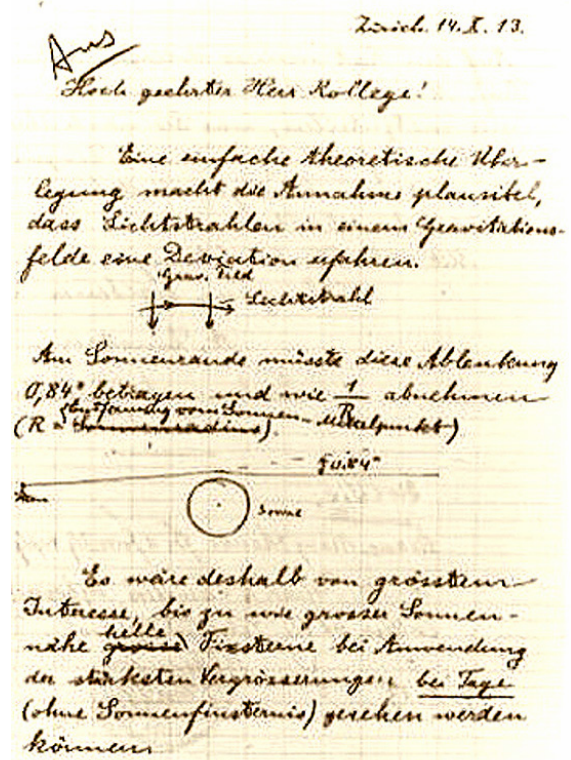 Zürich. 14. X. 13.
Hoch geehrter Herr Kollege!
Eine einfache theoretische Über-
legung macht die Annahme plausibel,
dass Lichtstrahlen in einem Gravitations-
felde eine Deviation erfahren.
Grav. Feld
Lichtstrahl
Am Sonnenrande müsste diese Ablenkung
0,84" betragen und wie 1/R abnehmen
Entfernung vom Sonnen-Mittelpunkt)
(R = Sonnenradius).
0.84"
Sonne
Es wäre deshalb von grösstem
Interesse, bis zu wie grosser Sonnen-
nähe helle Fixsterne bei Anwendung
der stärksten Vergrösserungen bei Tage
(ohne Sonnenfinsternis) gesehen werden
können.